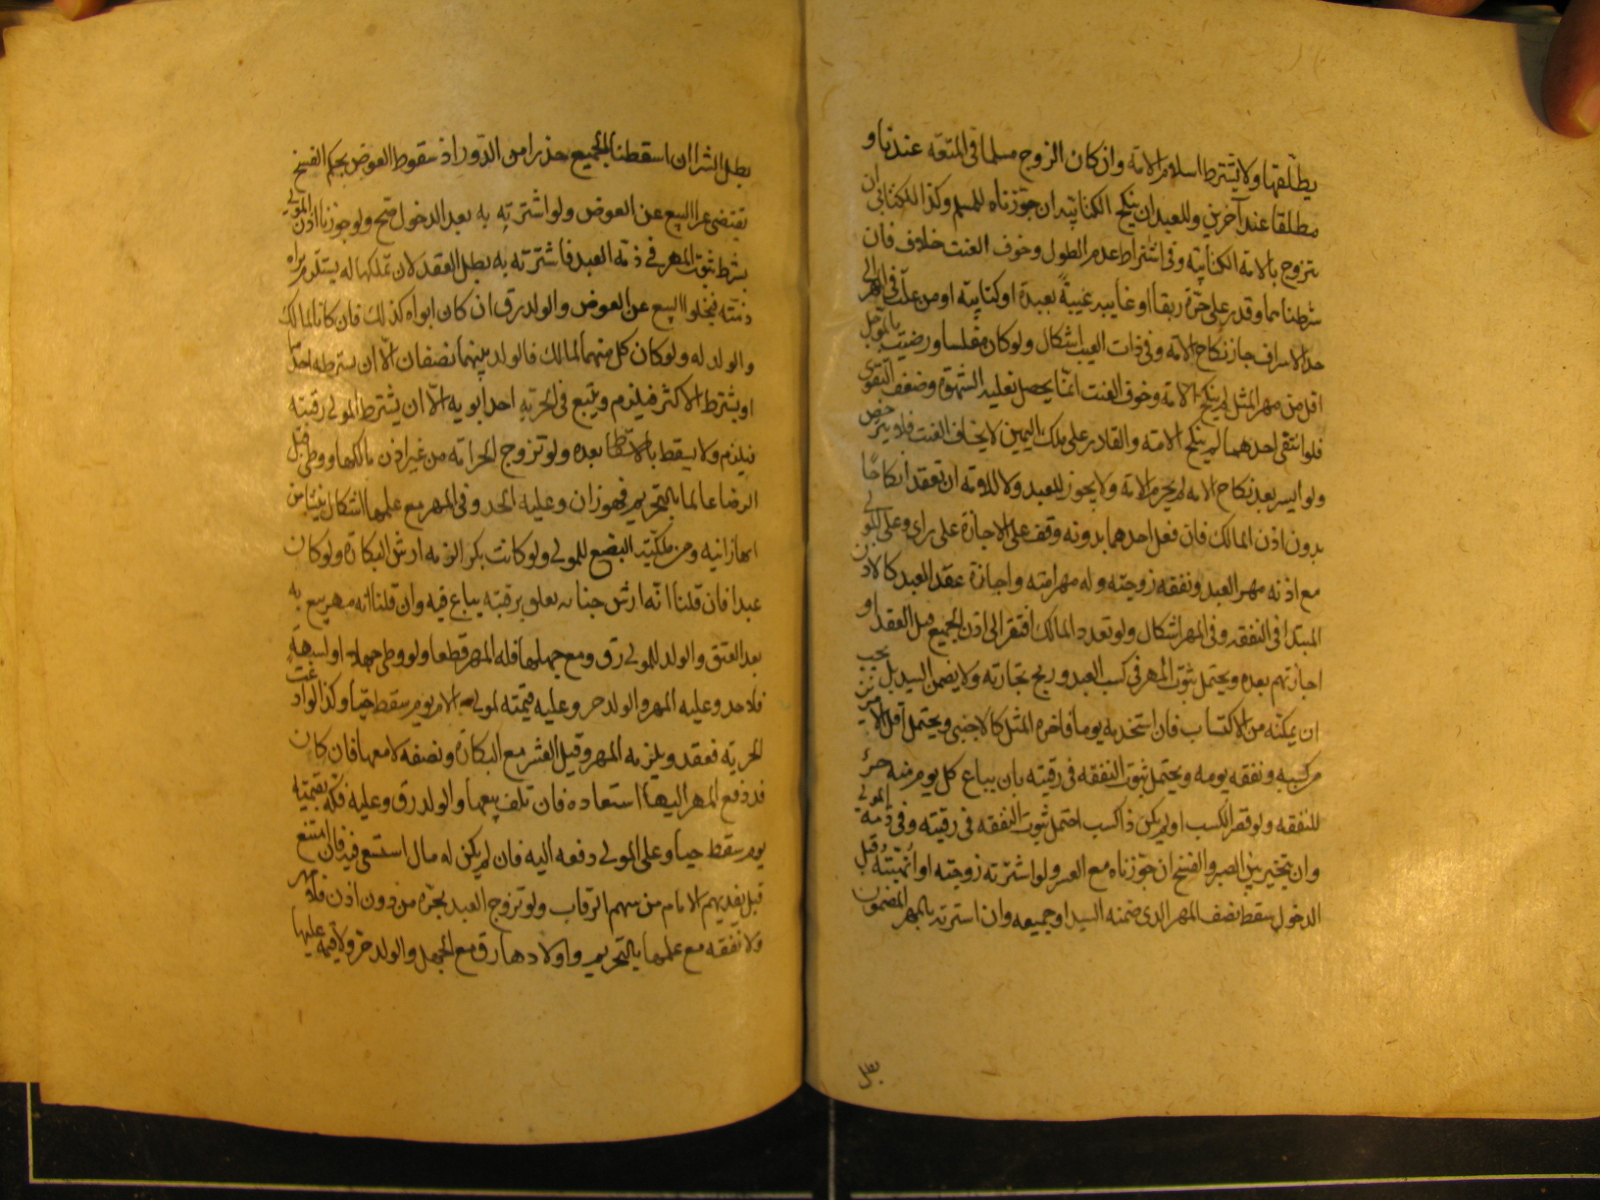 يطلقها ولا يشترط اسلام الامة وان كان الزوج مسلما في المتعة عندنا و
مطلقا عند آخرين وللعبد ان ينكح الكتابية ان جوزناه للمسلم وكذا للكتابي ان
يتزوج بالامة الكتابية وفي اشتراط عدم الطول وخوف العنت خلاف فان
شرطناهما وقدر على حرة رتقا او غايبه غيبة بعيدة او كتابية او من غالت في المهر الى
حد الاسراف جاز نكاح الامة وفي ذات العيب اشكال ولو كان مفلسا ورضيت بالمؤجل
اقل من مهر المثل لم ينكح الامة وخوف العنت انما يحصل بغلبة الشهوة وضعف التقوى
فلو انتفى احدهما لم ينكح الامة والقادر على ملك اليمين لا يخاف العنت فلا يترخص
ولو ايسر بعد نكاح الامة لم يحرم الامة ولا يجوز للعبد ولا للامة ان تعقد انكاحا
بدون اذن المالك فان فعل احدهما بدونه وقف على الاجازة على راى وعلى المولى
مع اذنه مهر العبد ونفقه زوجته وله مهر امته واجازة عقد العبد كالاذن
المبتدا في النفقه وفي المهر اشكال ولو تعدد المالك افتقر الى اذن الجميع قبل العقد او
اجازتهم بعده ويحتمل ثبوت المهر في كسب العبد وربح تجارته ولا يضمن السيد بل يجب
ان يمكنه من الاكتساب فان استخدمه يوما فاجره المثل كالاجنبي ويحتمل اقل الامرين
من كسبه ونفقه يومه ويحتمل ثبوت النفقه في رقبته بان يباع كل يوم منه جزء
للنفقه ولو قصر الكسب او لم يكن ذا كسب احتمل ثبوت النفقه في رقبته وفي ذمة المولى
وان يتخير بين الصبر والفسخ ان جوزناه مع العسر ولو اشترته زوجته او اتهبته قبل
الدخول سقط نصف المهر الذى ضمنه السيد او جميعه وان اشترته بالمهر المضمون
بطل
بطل الشرا ان اسقطنا الجميع حذرا من الدور اذ سقوط العوض بحكم الفسخ
يقتضي عرا البيع عن العوض ولو اشترته به بعد الدخول صح ولو جوزنا اذن المولى
بشرط ثبوت المهر في ذمه العبد فاشترته به بطل العقد لان تملكها له يستلزم براه
ذمته فيخلوا البيع عن العوض والولد رق ان كان ابواه كذلك فان كانا لمالك
والولد له ولو كان كل منهما لمالك فالولد بينهما نصفان الا ان يشترطه احدهما
او يشترط الاكثر فيلزم ويتبع في الحرية احد ابويه الا ان يشترط المولى رقيته
فيلزم ولا يسقط بالاسقاط بعده ولو تزوج الحر امة من غير اذن مالكها ووطى قبل
الرضا عالما بالتحريم فهو زان وعليه الحد وفي المهر مع علمها اشكال ينشا من
انها زانيه ومن ملكية البضع للمولى ولو كانت بكرا لزمه ارش البكارة ولو كان
عبدا فان قلنا انه ارش جناية تعلق برقبته يباع فيه وان قلنا انه مهر تبع به
بعد العتق والولد للمولى رق ومع جهلها فله المهر قطعا ولو وطى جهلا او لشبهة
فلا حد وعليه المهر والولد حر وعليه قيمته لمولى الام يوم سقط حيا وكذا لو ادعت
الحرية فعقد ويلزمه المهر وقيل العشر مع البكارة ونصفه لا معها فان كان
قد دفع المهر اليها استعاده فان تلف تبعها والولد رق وعليه فكه بقيمته
يوم سقط حيا وعلى المولى دفعه اليه فان لم يكن له مال استسعى فيه فان امتنع
قيل يفديهم الامام من سهم الرقاب ولو تزوج العبد بحرة من دون اذن فلا مهر
ولا نفقه مع علمها بالتحريم واولادها رق مع الجهل والولد حر ولا قيمة عليها